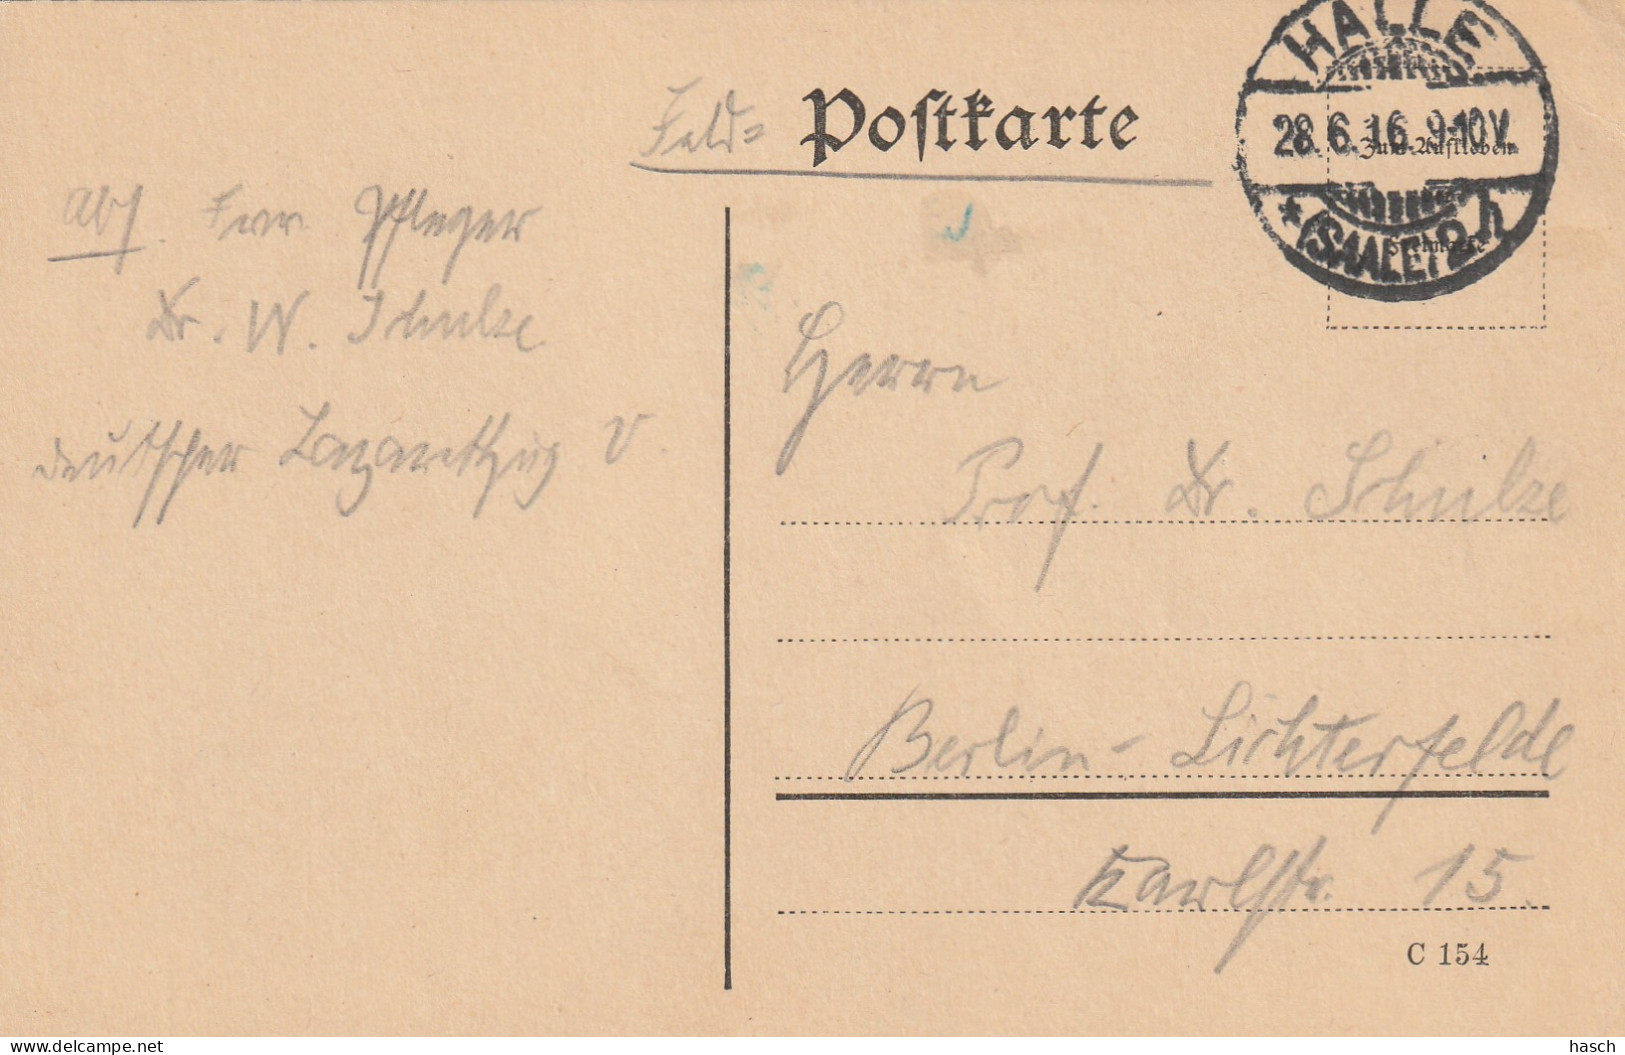 Feld= Postkarte
HALLE
28.6.16. 9-10V.
* (SAALE) 2 h
Zum Aufkleben
Abs. Frw. Pfleger
Dr. W. Schulze
deutscher Lazarettzug V.
Herrn
Prof. Dr. Schulze
Berlin-Lichterfelde
Karlstr. 15.
C 154
delcampe.net
hasch